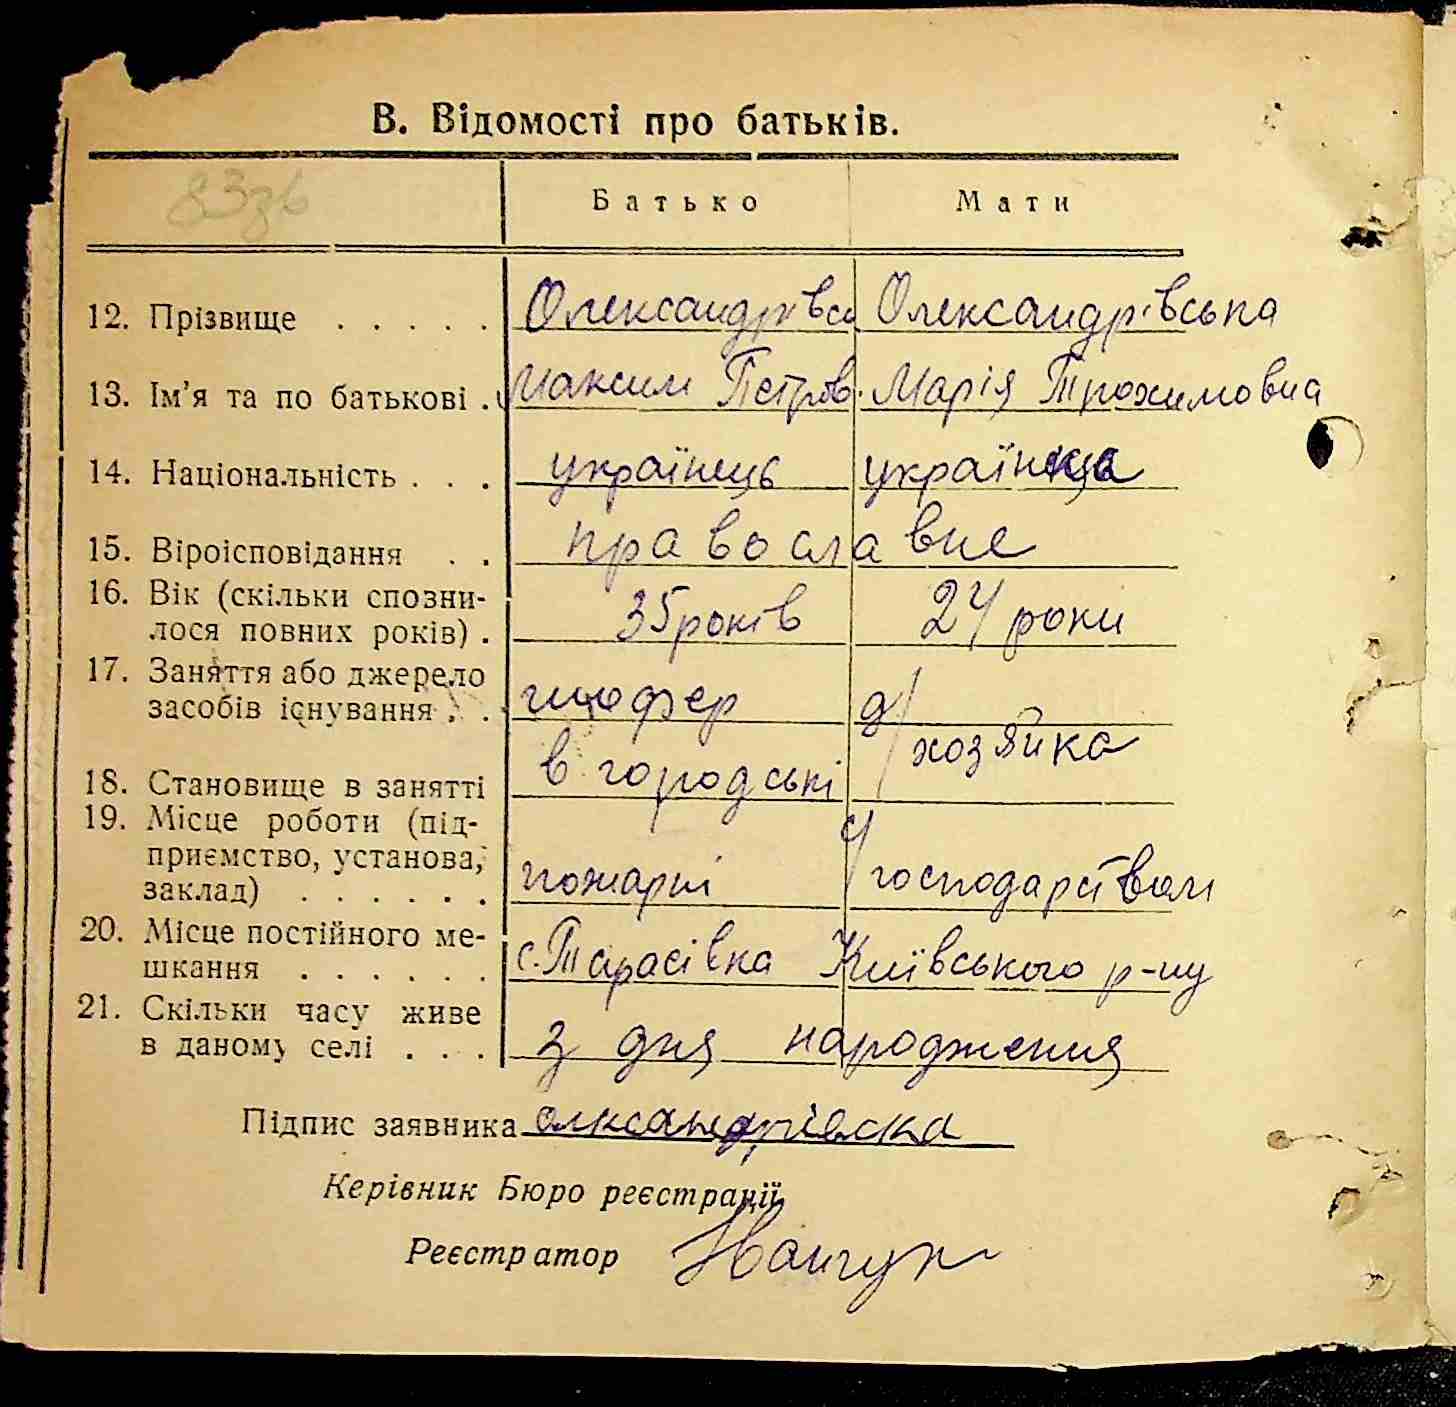 В. Відомості про батьків.
83зв
Батько Мати
12. Прізвище . . . . . Олександрівсь Олександрівська
13. Ім'я та по батькові . Максим Петров. Марія Трохимовна
14. Національність . . . українець українка
15. Віроісповідання . . православне
16. Вік (скільки спозни-
лося повних років) . 35 років 24 роки
17. Заняття або джерело
засобів існування . . шофер д/хозяйка
18. Становище в занятті в городські
19. Місце роботи (під-
приємство, установа,
заклад) . . . . . . пожарні господарством
20. Місце постійного ме-
шкання . . . . . . с. Тарасівка Київського р-ну
21. Скільки часу живе
в даному селі . . . з дня народження
Підпис заявника олксандрівска
Керівник Бюро реєстрації
Реєстратор